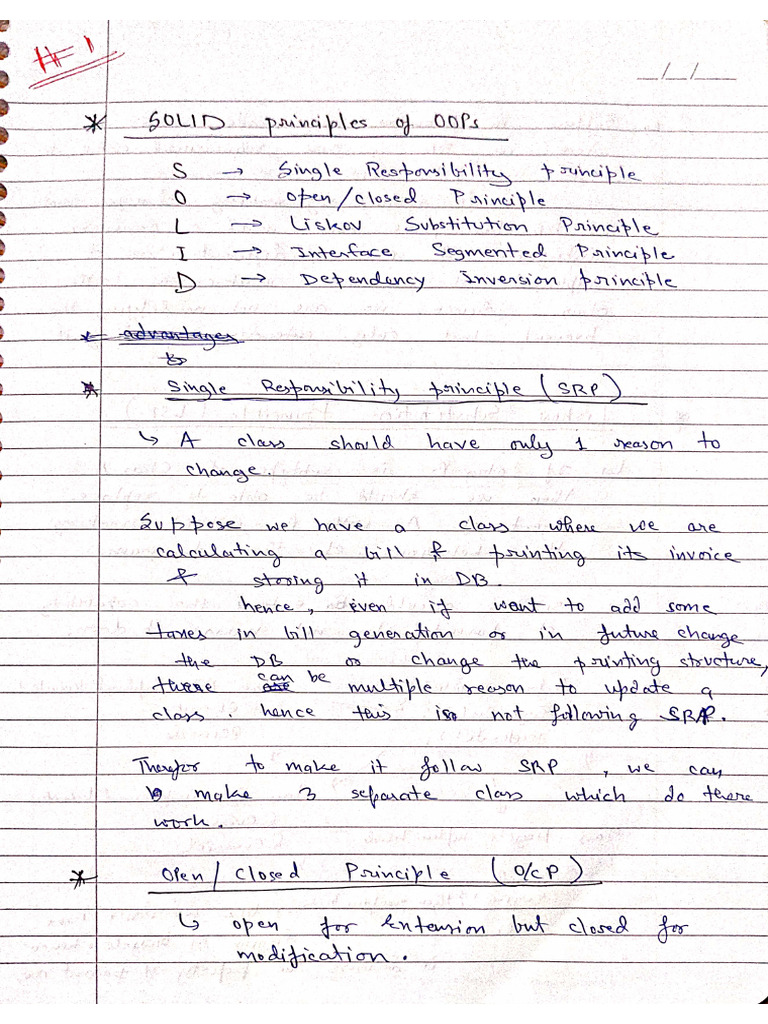 # 1
_/_/__
* SOLID principles of OOPs
S → Single Responsibility principle
O → open/closed Principle
L → Liskov Substitution Principle
I → Interface Segmented Principle
D → Dependancy Inversion principle
* advantages
to
* Single Responsibility principle (SRP)
↳ A class should have only 1 reason to
change.
Suppose we have a class where we are
calculating a bill & printing its invoice
& storing it in DB.
hence, even if want to add some
taxes in bill generation or in future change
the DB or change the printing structure,
there can be multiple reason to update a
class. hence this is not following SRP.
Therefor to make it follow SRP, we can
make 3 separate class which do there
work.
* Open/Closed Principle (O/CP)
↳ open for Extension but closed for
modification.